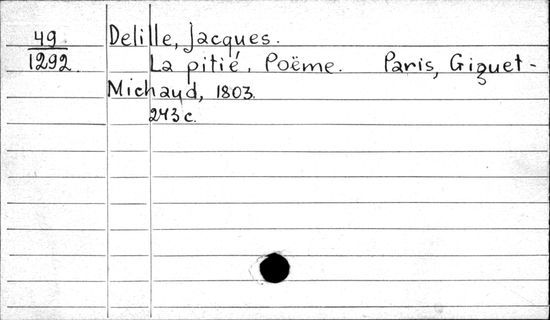 49
1292
Delille, Jacques.
La pitié, Poëme. Paris, Giguet-
Michaud, 1803.
243 c.